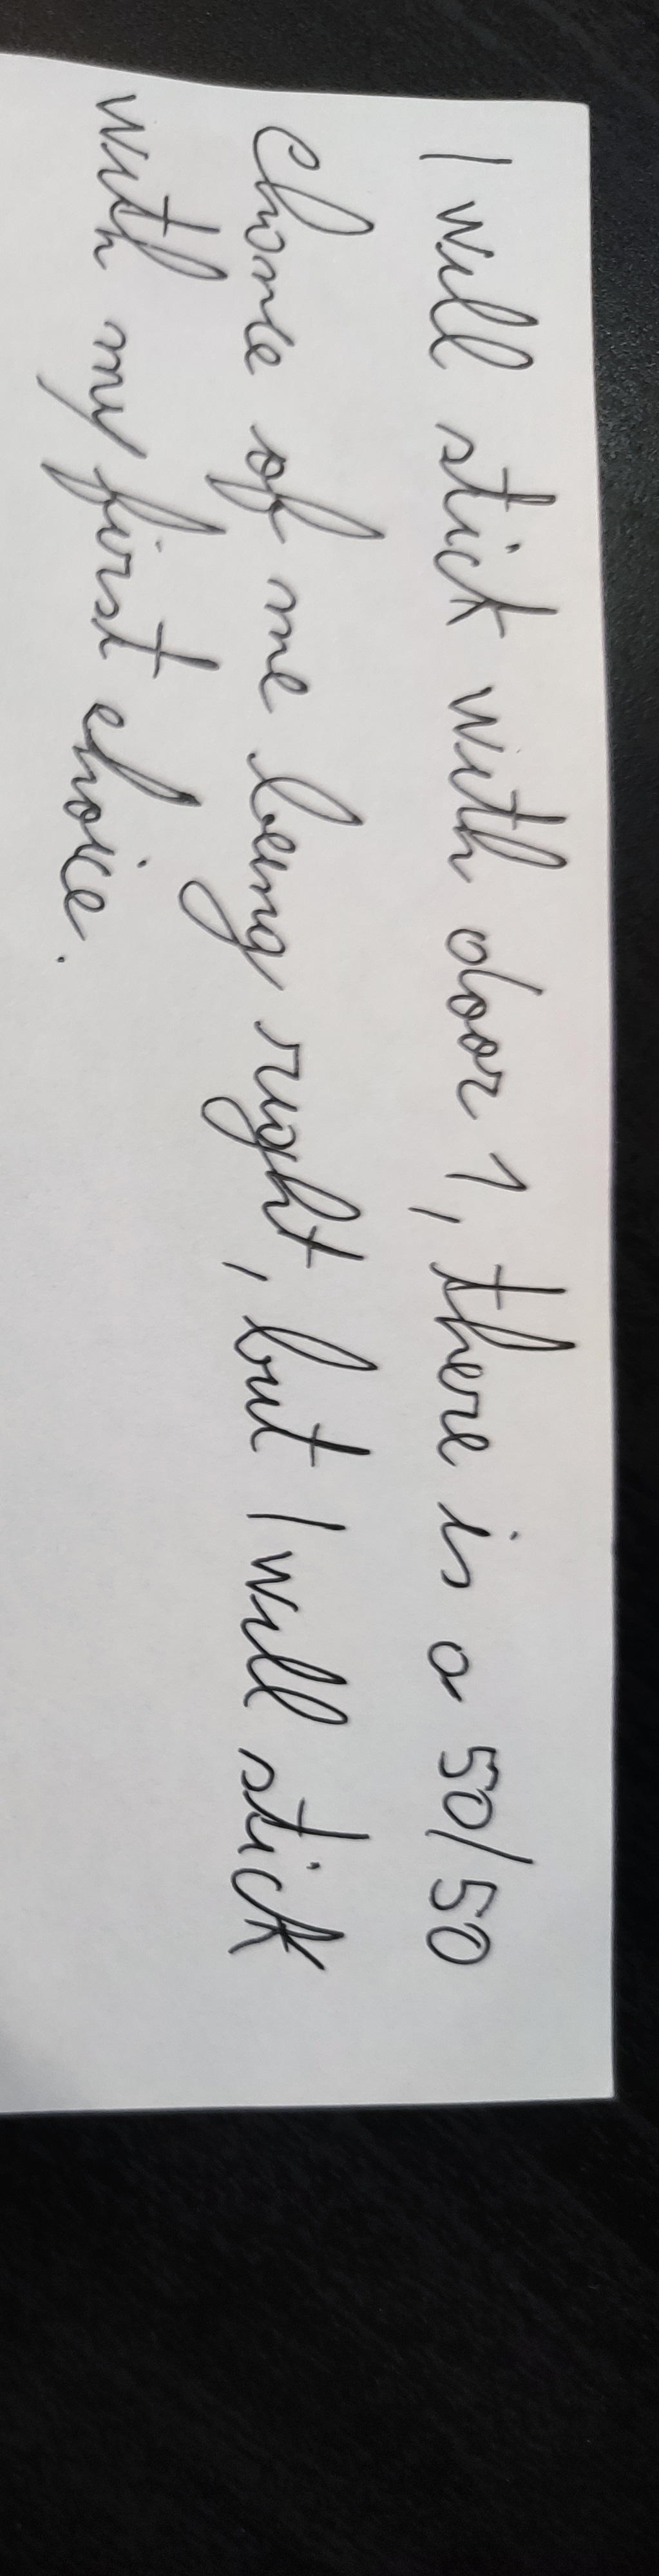 I will stick with door 1, there is a 50/50
chance of me being right, but I will stick
with my first choice.